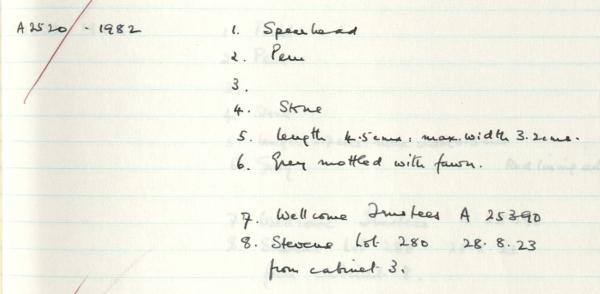 A2520 - 1982
1. Spearhead
2. Peru
3.
4. Stone
5. Length 4.5cms, max. width 3.2cms.
6. Grey mottled with fawn.
7. Wellcome Trustees A 25390
8. Stevens Lot 280 28.8.23
from cabinet 3.